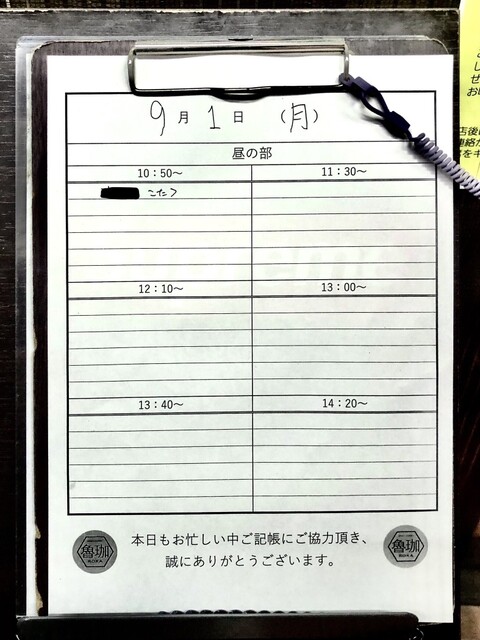 9月1日（月）
昼の部
10：50～
11：30～
こたつ
12：10～
13：00～
13：40～
14：20～
本日もお忙しい中ご記帳にご協力頂き、
誠にありがとうございます。
魯珈
魯珈
店後に
連絡が